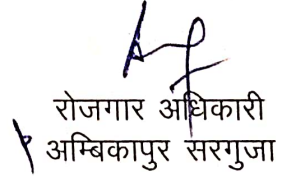 रोजगार अधिकारी
अम्बिकापुर सरगुजा